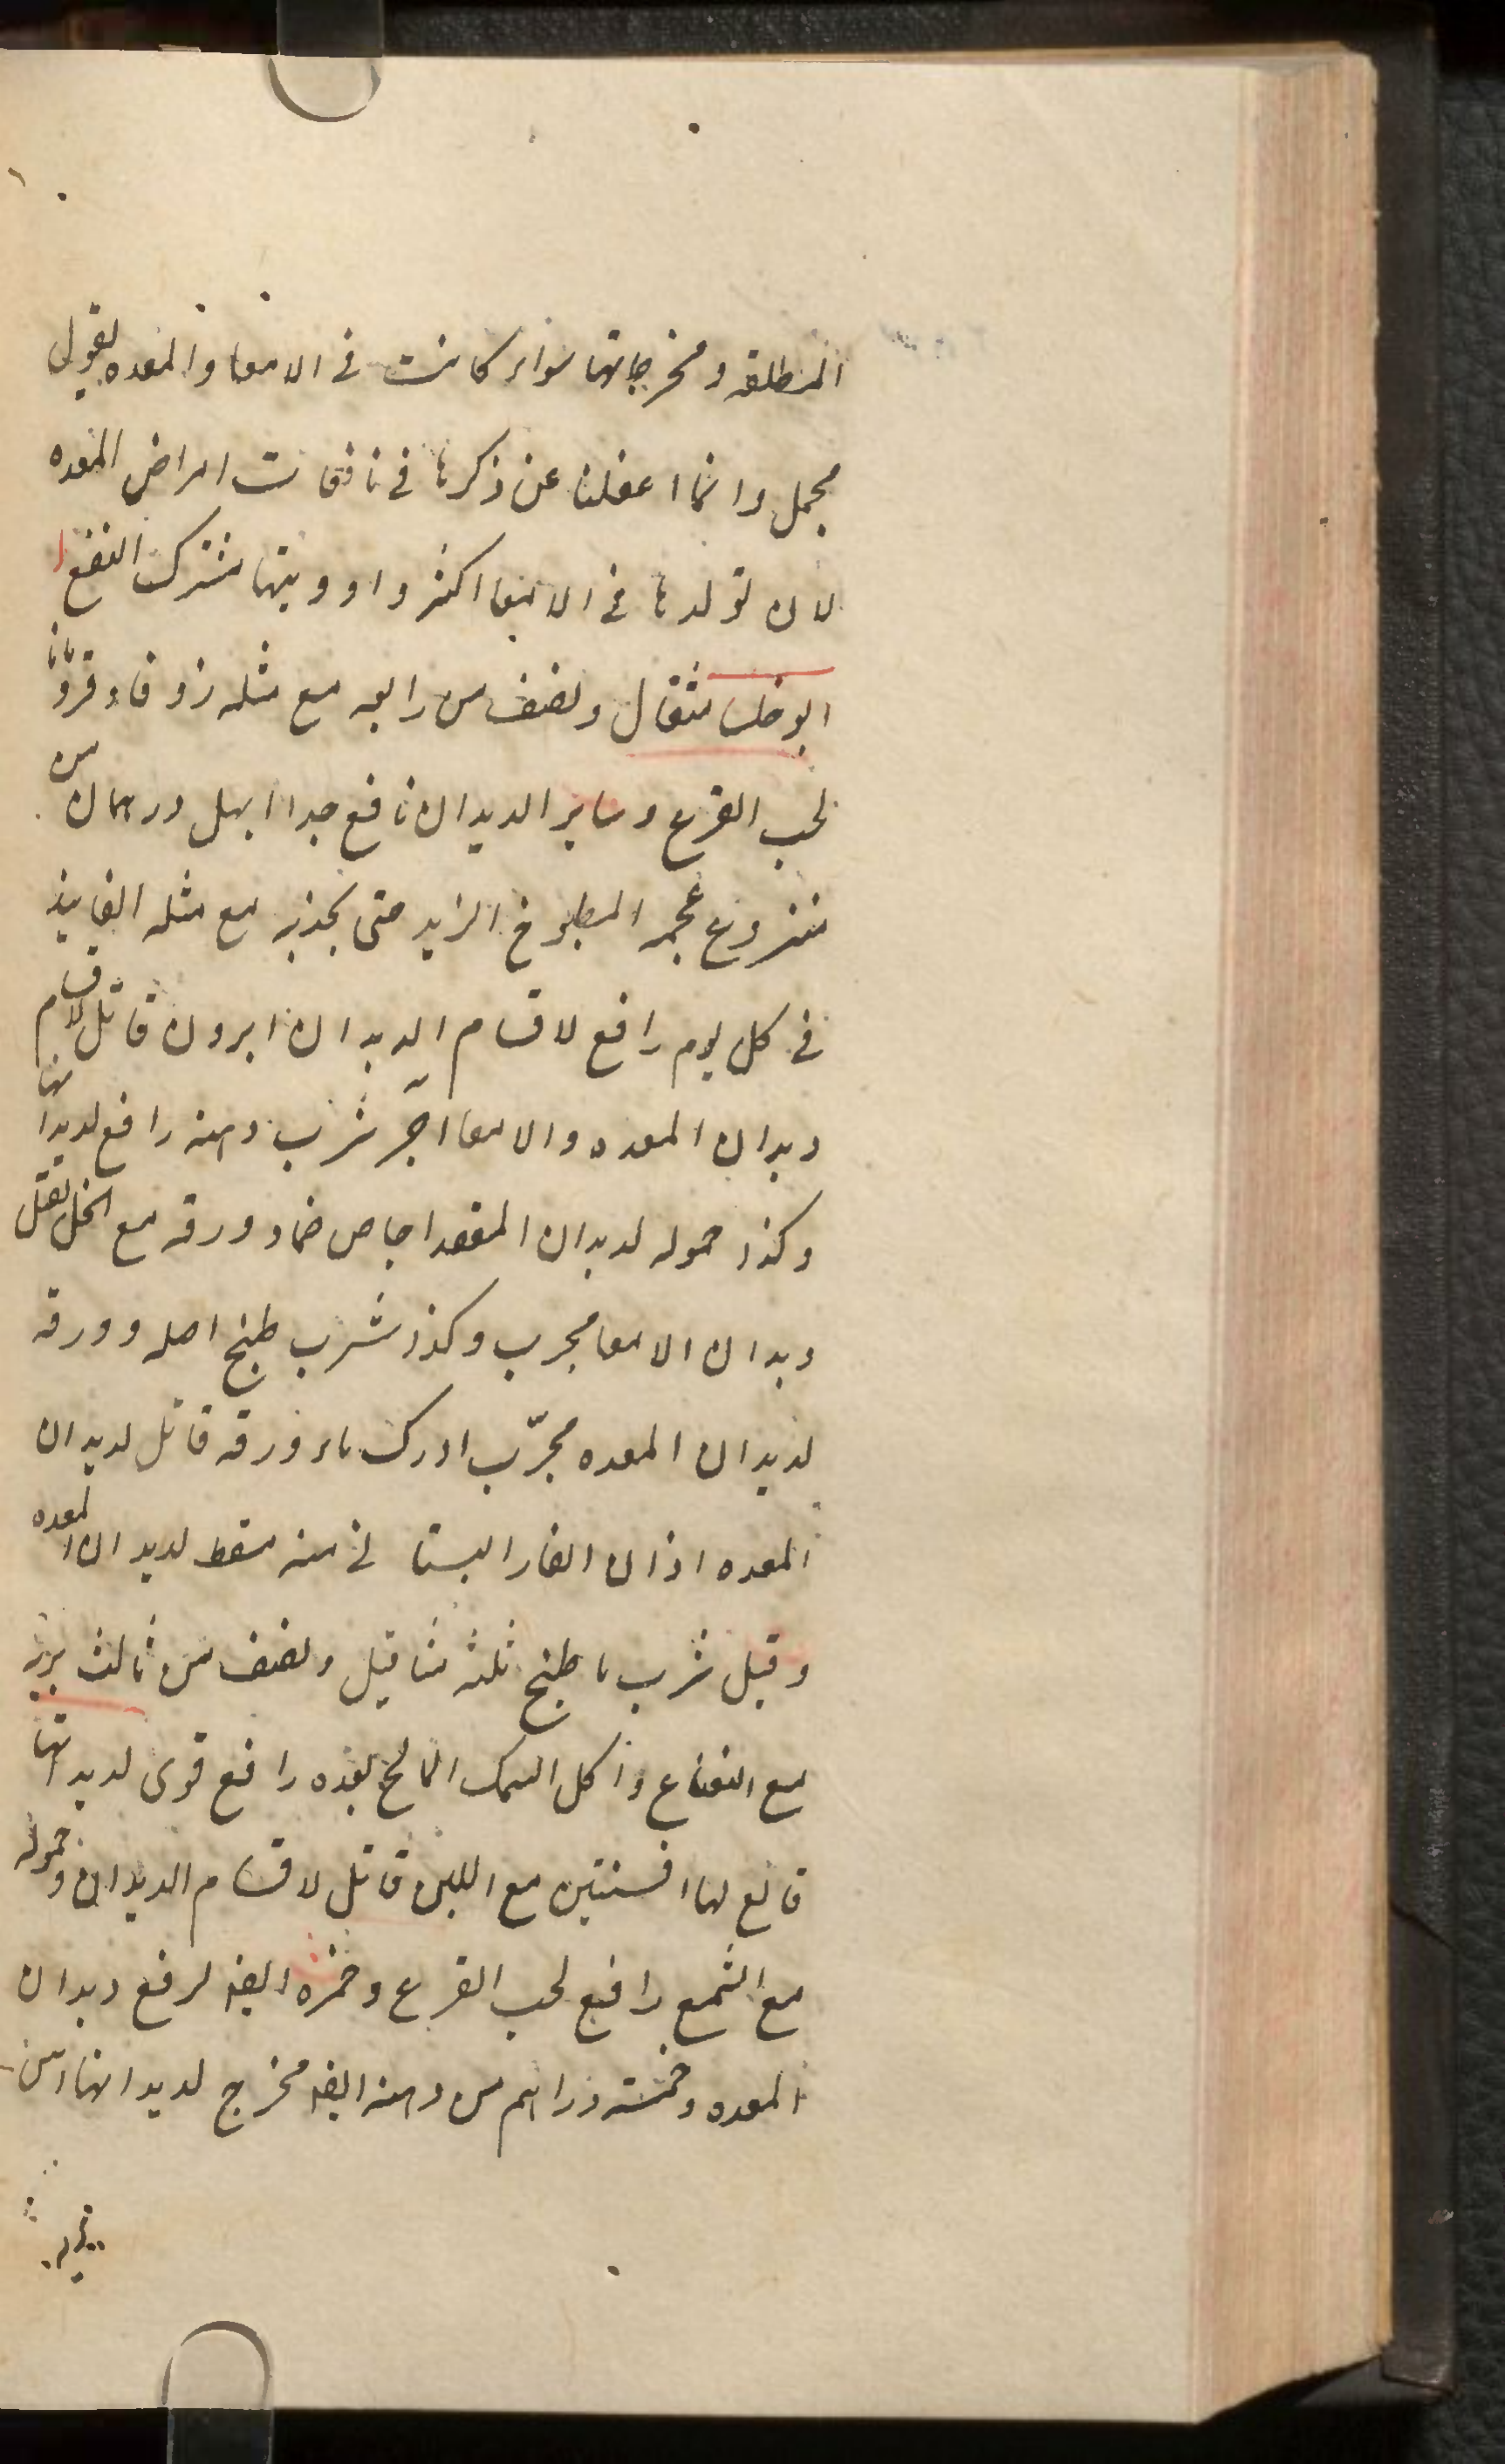 المطلقه ومخرجاتها سواء كانت فى الامعا والمعده بقول
مجمل وانما اغفلنا عن ذكرها فى نافعات امراض المعده
لان تولدها فى الامعا اكثر وادويتها مشترك النفع
ابوخلسا مثقال ونصف من رابعه مع مثله زوفا وقردمانا
لحب القرع وساير الديدان نافع جدا ابهل درهمان من
منزوع عجمه المطبوخ الزبد حتى يجذبه مع مثله الفانيذ
فى كل يوم رافع لاقسام الديدان ابرون قاتل لاقسام
ديدان المعده والامعا اجر شرب دهنه رافع لديدانها
وكذا حموله لديدان المقعد اجاص ضماد ورقه مع الخل لقتل
ديدان الامعا مجرب وكذا شرب طبخ اصله وورقه
لديدان المعده مجرّب ادرك ماء ورقه قاتل لديدان
المعده اذان الفار البستانى منه مسقط لديدان المعده
وقيل شرب ما طبخ ثلثه مثاقيل ونصف من ثالث بريه
مع النعناع واكل السمك المالح بعده رافع قوى لديدانها
قالع لها افسنتين مع اللبن قاتل لاقسام الديدان وحموله
مع الشمع رافع لحب القرع وخمره ايضا لرفع ديدان
المعده وخمسه دراهم من دهنه ايضا مخرج لديدانها اس